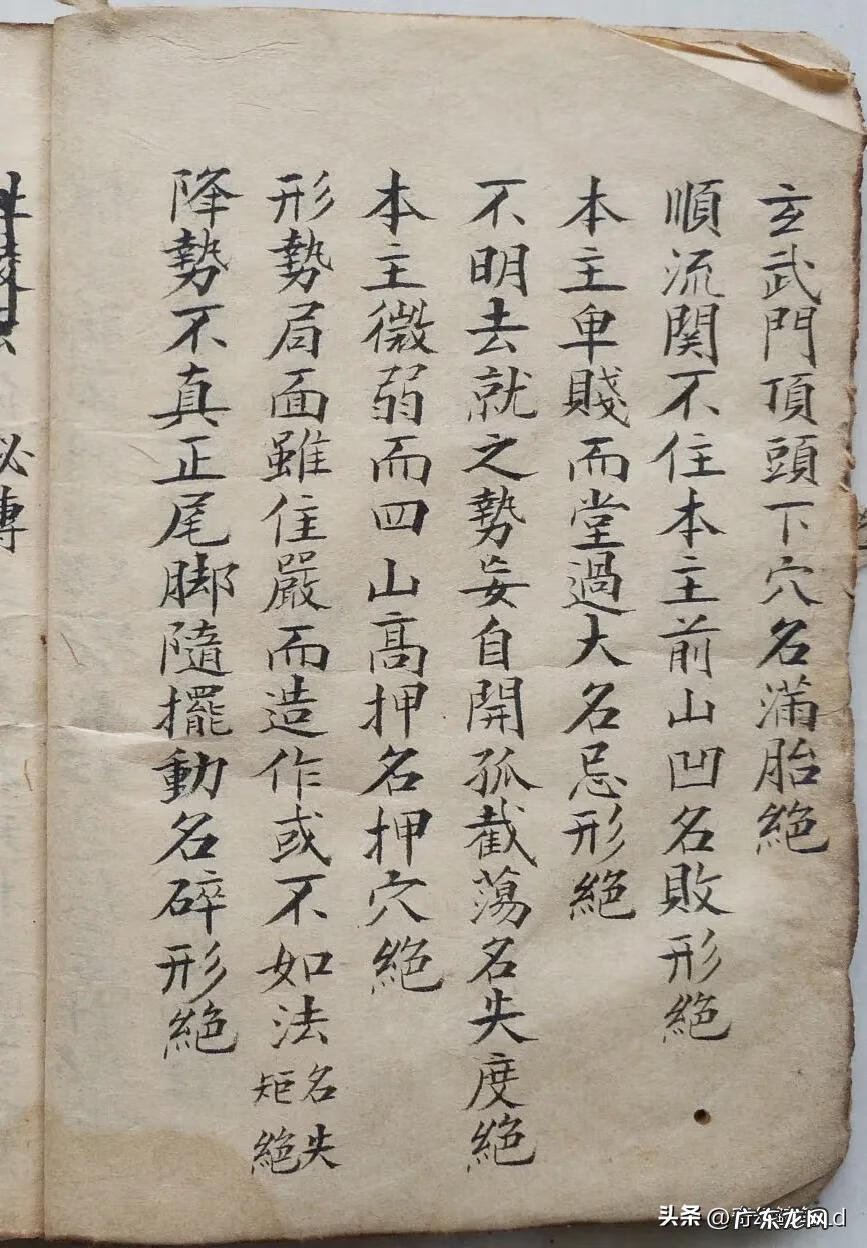 玄武門頂頭下穴名滿胎絕
順流関不住本主前山凹名敗形絕
本主卑賤而堂過大名忌形絕
不明去就之勢妄自開孤截蕩名失度絕
本主微弱而四山高押名押穴絕
形勢局面雖住嚴而造作或不如法名失矩絕
降勢不真正尾脚隨擺動名碎形絕
必傳
头条 @广东龙网